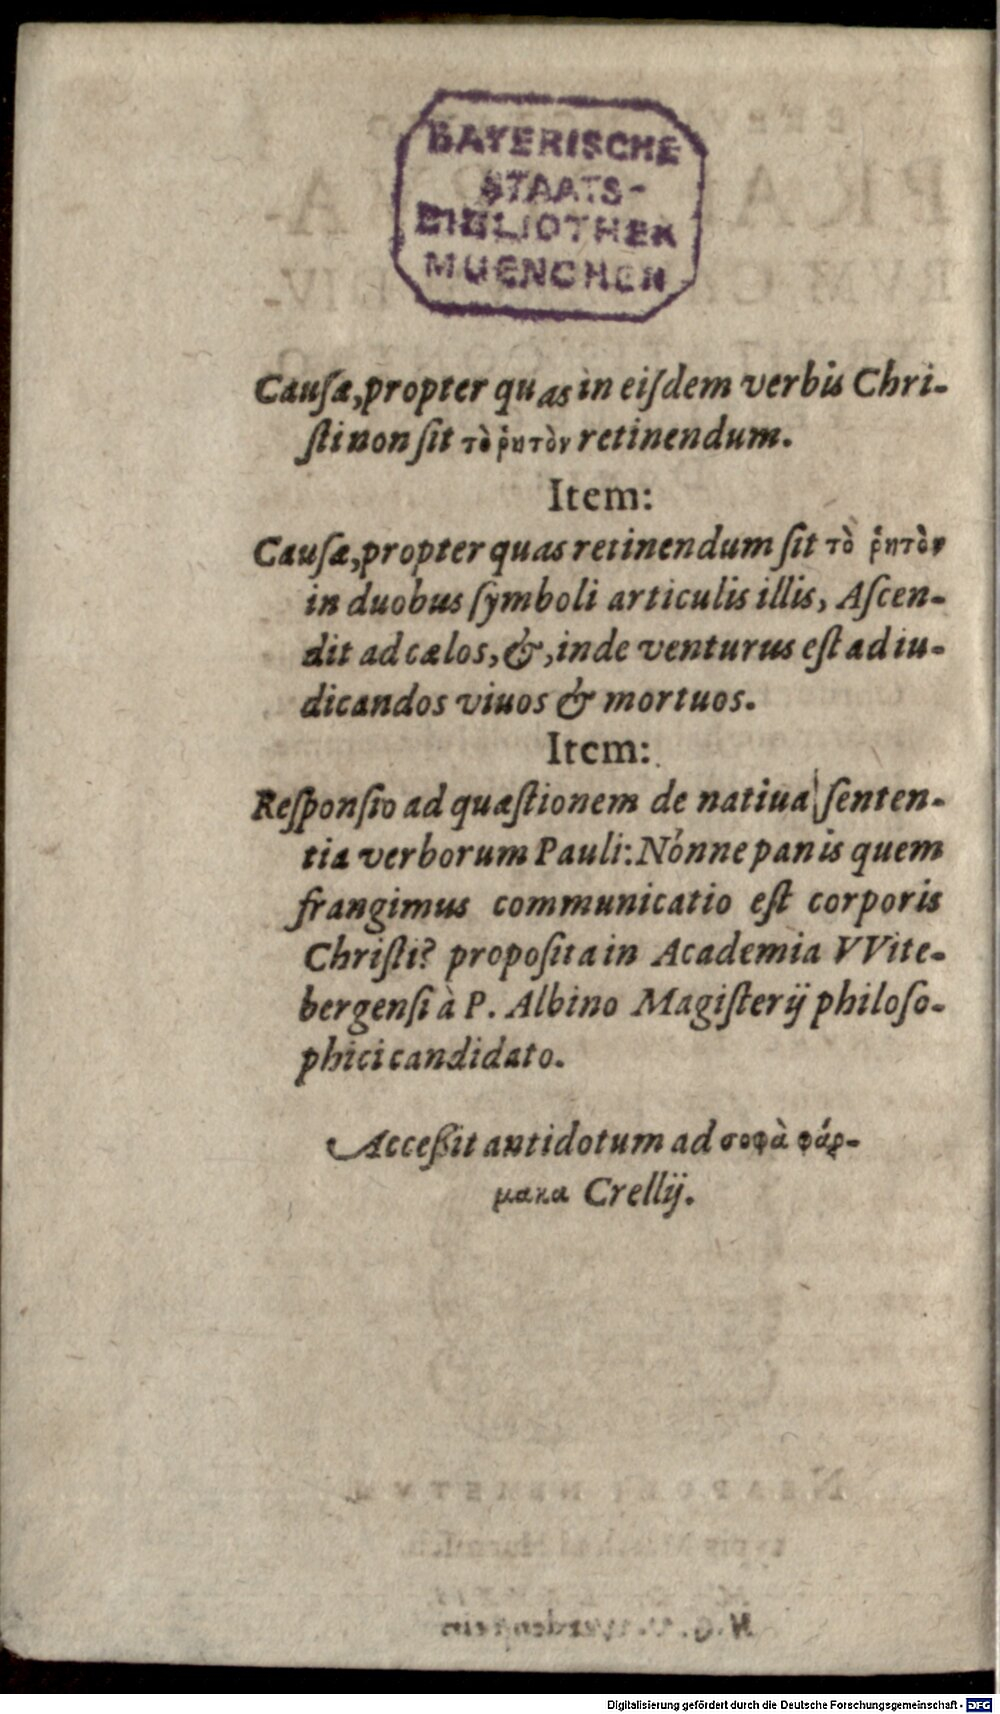 BAYERISCHE
STAATS-
BIBLIOTHEK
MUENCHEN
Cauſæ, propter quas in eiſdem verbis Chri-
ſti non ſit τὸ ῥητὸν retinendum.
Item:
Cauſæ, propter quas retinendum ſit τὸ ῥητὸν
in duobus ſymboli articulis illis, Aſcen-
dit ad cælos, &, inde venturus eſt ad iu-
dicandos viuos & mortuos.
Item:
Reſponſio ad quæſtionem de natiua ſenten-
tia verborum Pauli: Nónne panis quem
frangimus communicatio eſt corporis
Chriſti? propoſita in Academia VVite-
bergenſi à P. Albino Magiſterij philoſo-
phici candidato.
Acceßit antidotum ad σοφὰ φάρ-
μακα Crellij.
Digitalisierung gefördert durch die Deutsche Forschungsgemeinschaft - DFG